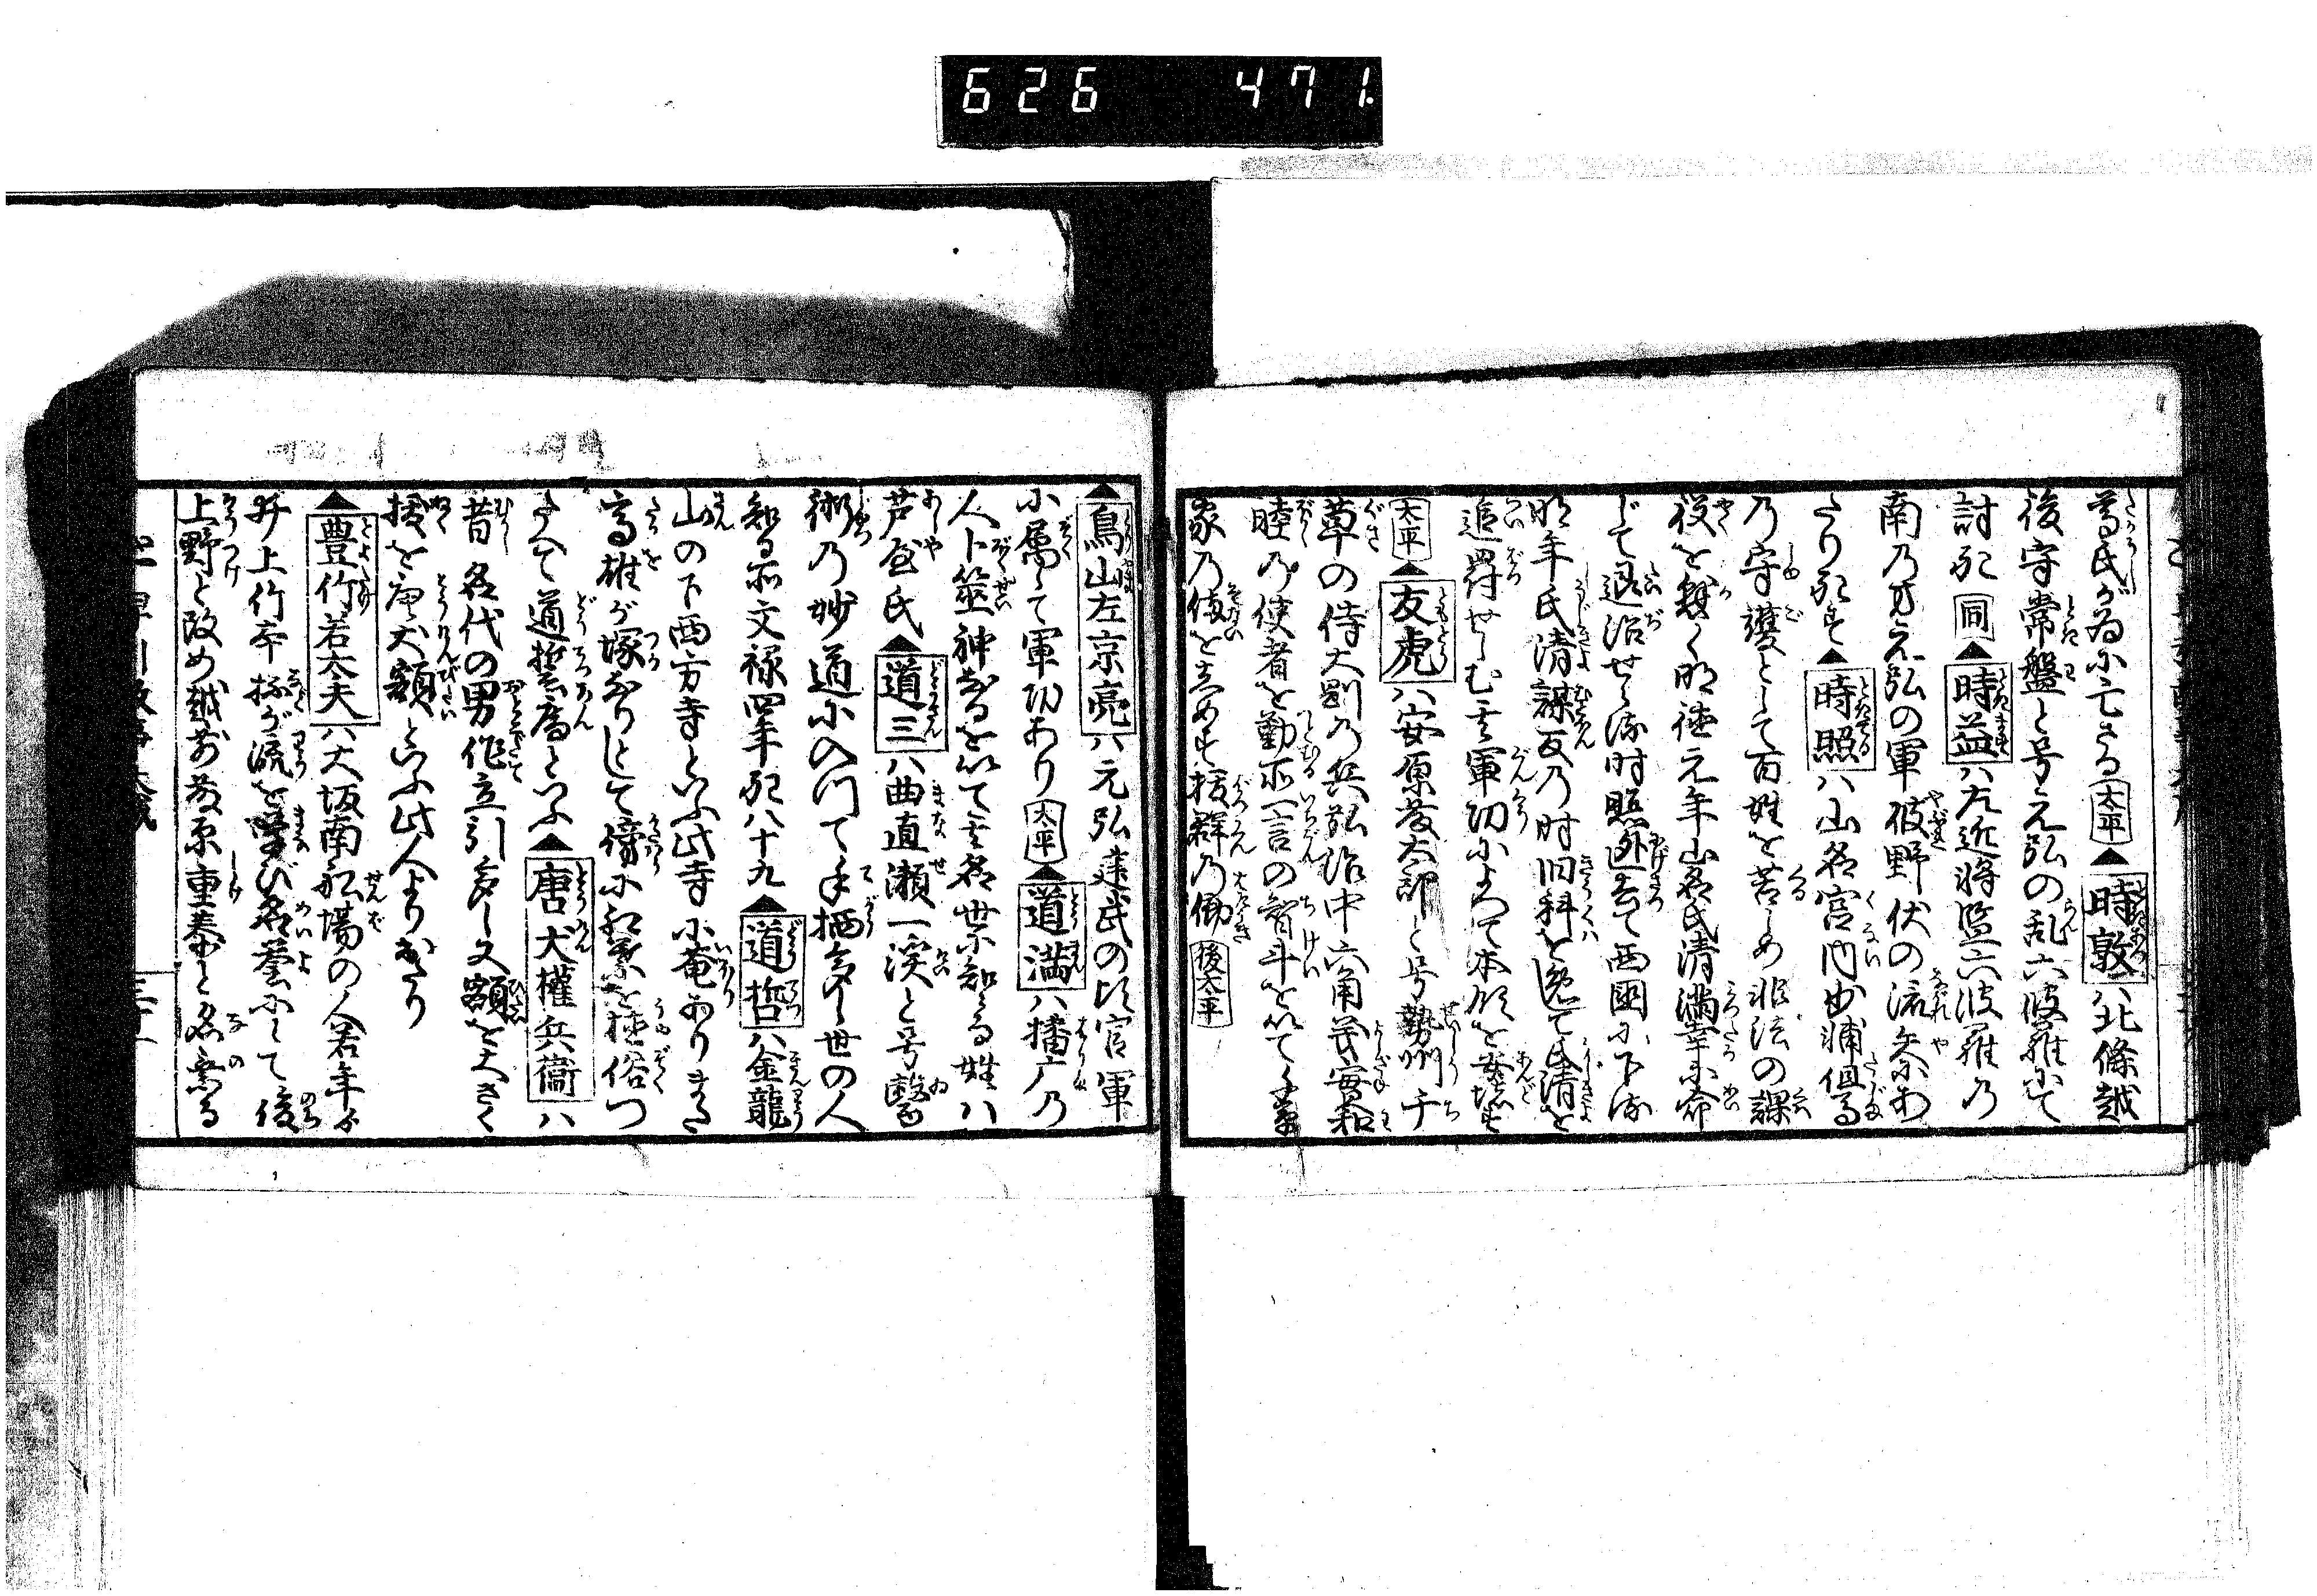 626 471
尊氏がゐに亡さる太平▲時敦ハ北條越
後守常盤と号元弘の乱六波羅にて
討死同▲時益ハ左近将監六波羅乃
南乃方元弘の軍彼野伏の流矢にあ
たり死す▲時照ハ山名宮内少輔但馬
乃守護として百姓を苦しめ非法の課
役を懸く明徳元年山名氏清満幸に命
じて退治せらる時照逃去て西国に下る
明年氏清謀反乃時旧科を免て氏清を
追罸せしむ其軍功によつて本領を安堵す
太平▲友虎ハ安原友太郎と号勢州千
草の侍大剛乃兵弘治中六角義実和
睦乃使者を勤亦一言の智斗を以て
家乃侮を志めす抜群乃働後太平
▲鳥山左京亮ハ元弘建武の頃官軍
に属して軍功あり太平▲道満ハ播广乃
人卜筮神なるを以て其名世に知る姓ハ
芦屋氏▲道三ハ曲直瀬一溪と号醫
術乃妙道に入門て手柄多し世の人
知る所文禄四年死八十九▲道哲ハ金龍
山の下西方寺といふ此寺に菴ありまた
高雄が塚ありとて傍に紅葉を植俗つ
たへて道哲庵といふ▲唐犬權兵衞ハ
昔名代の男作立引多し又額を大きく
抜を唐犬額といふ此人よりおこり
▲豊竹若太夫ハ大坂南舩場の人若年より
井上竹本抔が流を学び名誉にして後
上野と改め越前藤原重泰と名乗る